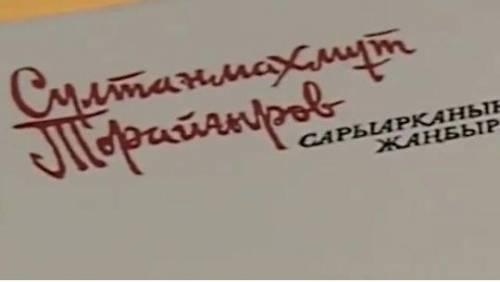 Сұлтанмахмұт
Торайғыров
САРЫАРҚАНЫҢ
ЖАҢБЫР